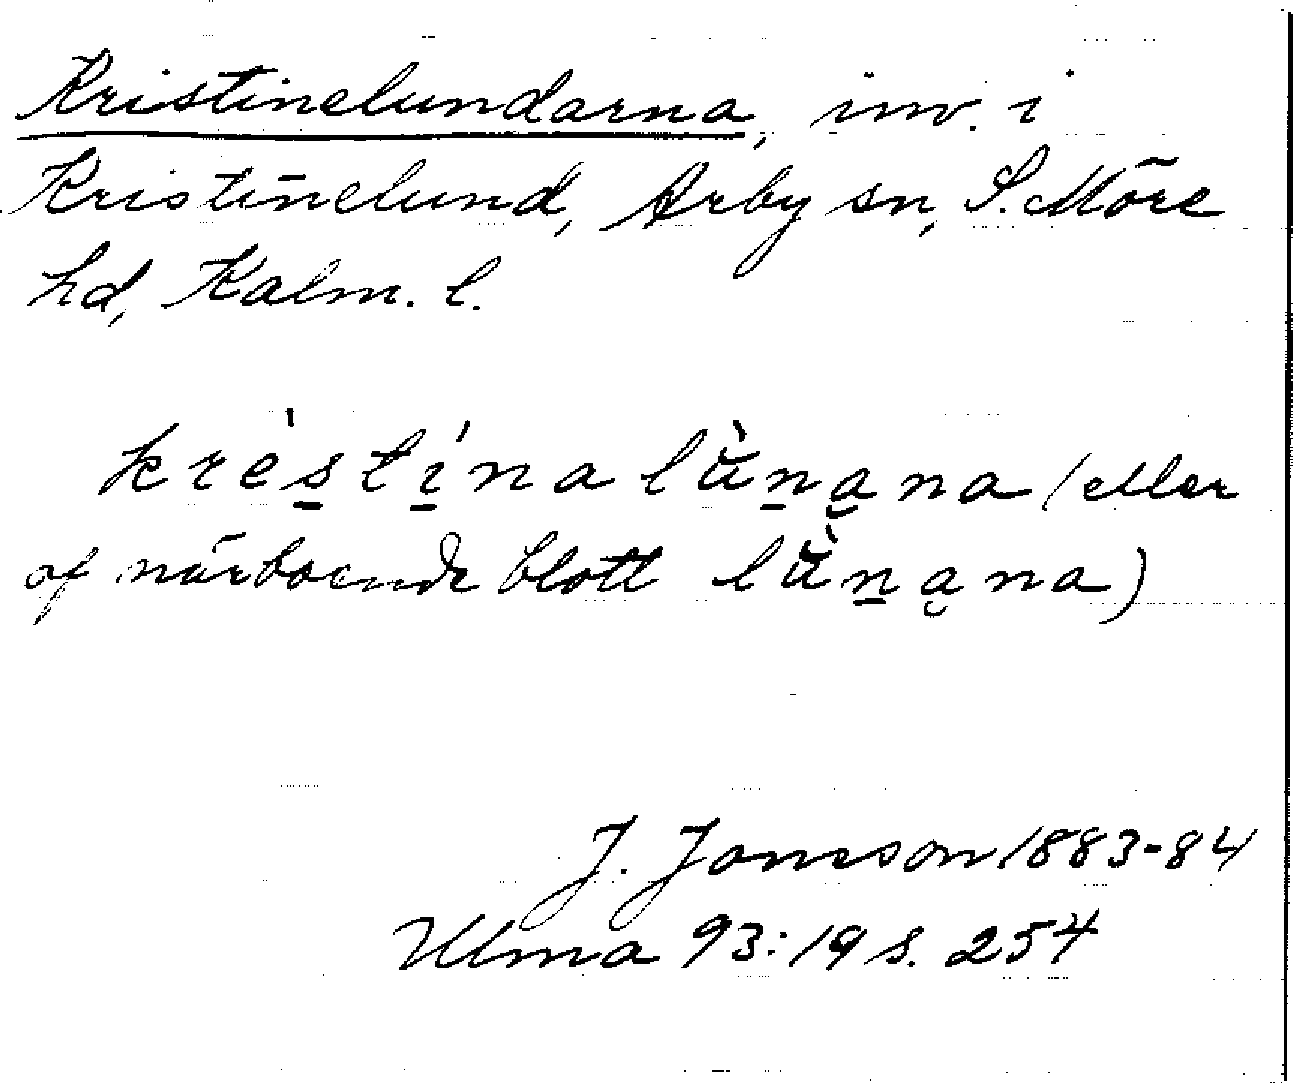 Kristinelundarna, inv. i
Kristinelund, Arby sn, S. Möre
hd, Kalm. l.
krès̱tí̱na lǜṉa̮na (eller
af närboende blott lǜṉa̮na)
J. Jonsson 1883-84
Ulma 93:19 s. 254